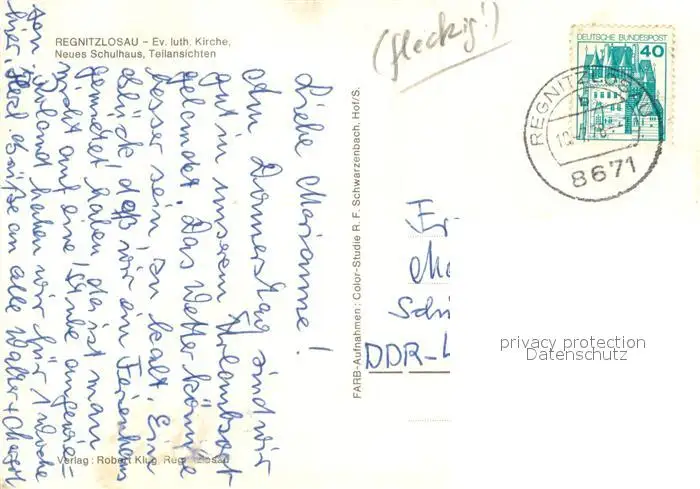 REGNITZLOSAU – Ev. luth. Kirche,
Neues Schulhaus, Teilansichten
(fleckig!)
DEUTSCHE BUNDESPOST
40
REGNITZLOSAU
8671
Liebe Marianne!
Am Donnerstag sind wir
gut in unserem Urlaubsort
gelandet. Das Wetter könnte
besser sein, zu kalt. Ein
Glück, daß wir ein Ferienhaus
gemietet haben, da ist man
nicht auf eine Stube angewie-
sen. Roland haben wir für 1 Woche
hier. Herzl. Grüße an alle Walter +
FARB-Aufnahmen: Color-Studie R. F. Schwarzenbach, Hof/S.
Fr
Ma
Sch
DDR-
privacy protection
Datenschutz
Verlag: Robert Klug, Regnitzlosau